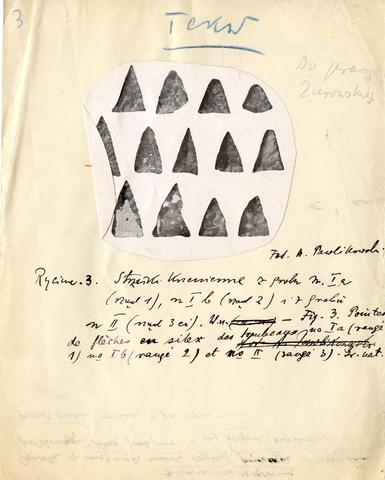 3
Tekst
Do pracy
Żurowskiej
Fot. A. Pawlikowski.
Rycina. 3. Strzałki krzemienne z grobu nr. Ia
(rząd 1), nr Ib (rząd 2) i z grobu
nr II (rząd 3ci). W.n. — Fig. 3. Pointes
de flèches en silex des tombeaux no Ia (rangée
1) no Ib (rangé 2) et no II (rangé 3). Gr. nat.